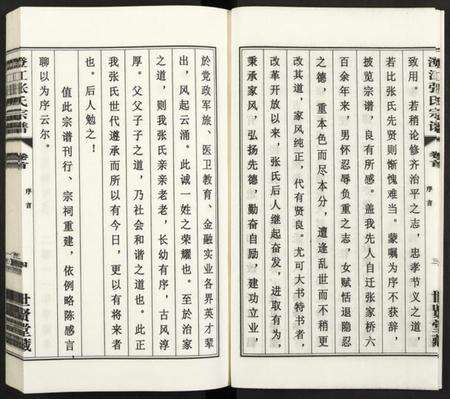 致用。若稍论修齐治平之志,忠孝节义之道,
若比张氏先贤则惭愧难当。蒙嘱为序不获辞,
披览宗谱,良有所感。盖我先人自迁张家桥六
百余年来,男怀忍辱负重之志,女赋恬退隐忍
之德,重本色而尽本分,遭逢乱世而不稍更
改其道,家风纯正,代有贤良。尤可大书特书者,
改革开放以来,张氏后人继起奋发,进取有为,
秉承家风,弘扬先德,勤奋自励,建功立业,
江张氏宗谱
卷首
序言
世贤堂藏
江张氏宗谱
卷首
序言
世贤堂藏
於党政军旅、医卫教育、金融实业各界英才辈
出,风起云涌。此诚一姓之荣耀也。至於治家
之道,则我张氏亲亲老老,长幼有序,古风淳
厚。父父子子之道,乃社会和谐之道也。此正
我张氏世代遵承而所以有今日,更以有将来者
也。后人勉之!
值此宗谱刊行、宗祠重建,依例略陈感言
聊以为序云尔。